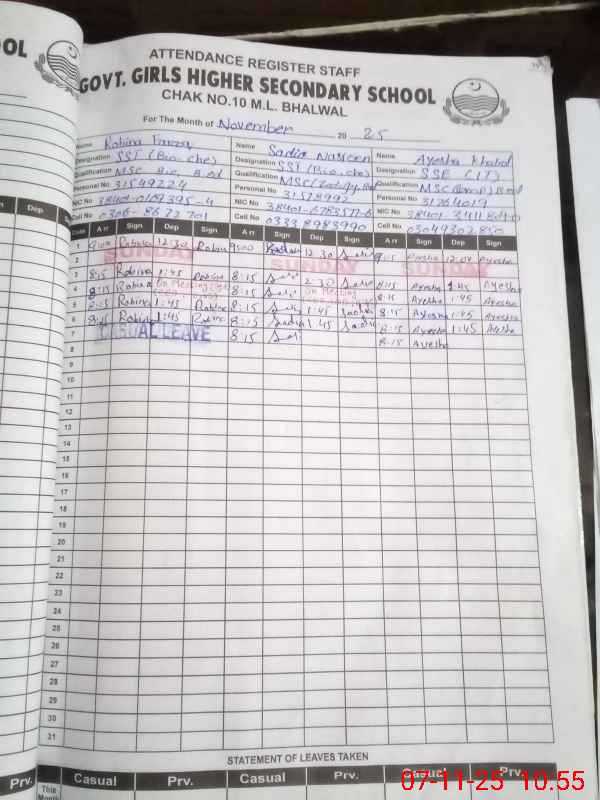 OOL
ATTENDANCE REGISTER STAFF
GOVT. GIRLS HIGHER SECONDARY SCHOOL
CHAK NO.10 M.L. BHALWAL
For The Month of November 2025
Name Robina Name Sadia Nasreen Name Ayesha Khalid
Designation SST (Bio.che) Designation SST (Bio.che) Designation SSE (IT)
Qualification MSc Bio, B.ed Qualification MSc Qualification MSC B.ed
Personal No 31549224 Personal No Personal No 31264019
NIC No NIC No NIC No
Cell No Cell No 0333 8983990 Cell No 03049302850
Dep Sign
Date A rr Sign Dep Sign A rr Sign Dep Sign A rr Sign Dep Sign
1 9:00 Robina 12:30 Robina 9:00 12:30 Ayesha 12:04 Ayesha
2 SUNDAY SUNDAY SUNDAY
3 8:15 Robina 1:45 Robina 8:15 8:15 Ayesha 1:45 Ayesha
4 8:15 Robina On Meeting 8:15 On Meeting 8:15 Ayesha 1:45 Ayesha
5 8:15 Robina 1:45 Robina 8:15 1:45 Sadia 8:15 Ayesha 1:45 Ayesha
6 8:15 Robina 1:45 Robina 8:15 Sadia 1:45 Sadia 8:15 Ayesha 1:45 Ayesha
7 CASUAL LEAVE 8:15 8:15 Ayesha
8
9
10
11
12
13
14
15
16
17
18
19
20
21
22
23
24
25
26
27
28
29
30
31
STATEMENT OF LEAVES TAKEN
Prv. This Month Casual Prv. Casual Prv. Casual Prv.
07-11-25 10.55